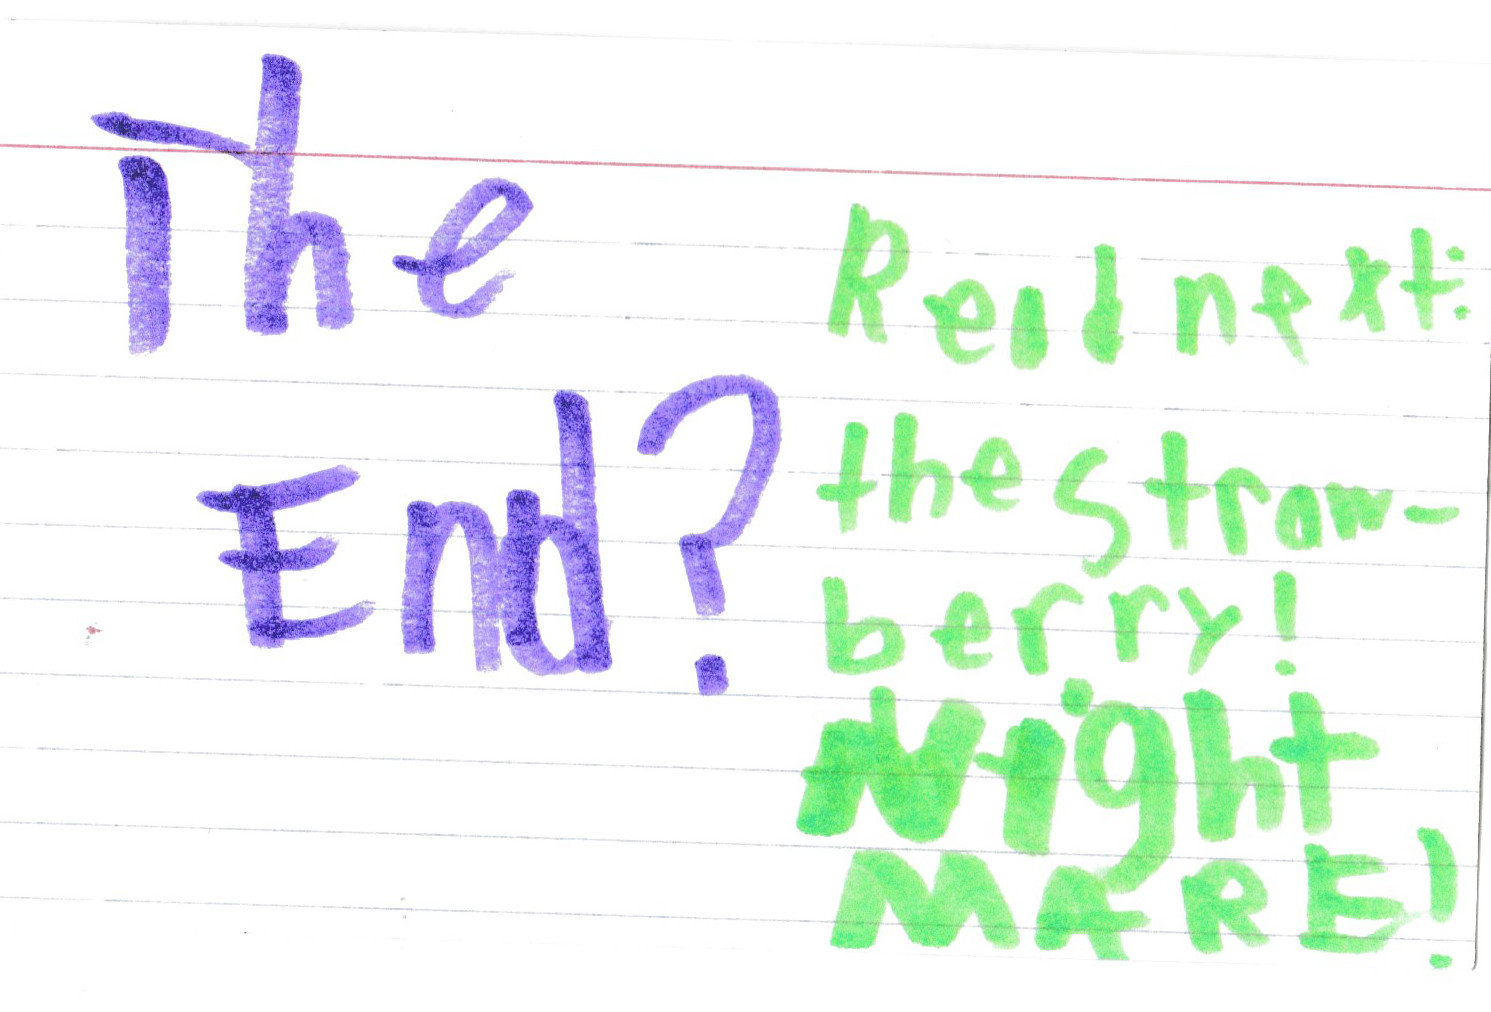 The
End?
Read next:
the straw-
berry!
Night
MARE!